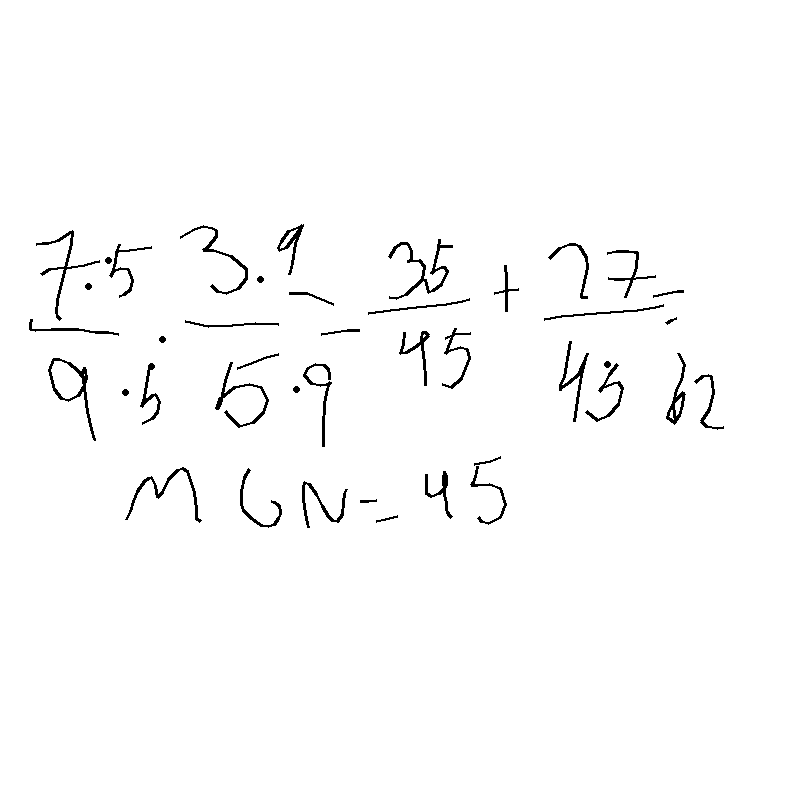 7·5/9·5 · 3·9/5·9 = 35/45 + 27/45 = 62
MGN = 45